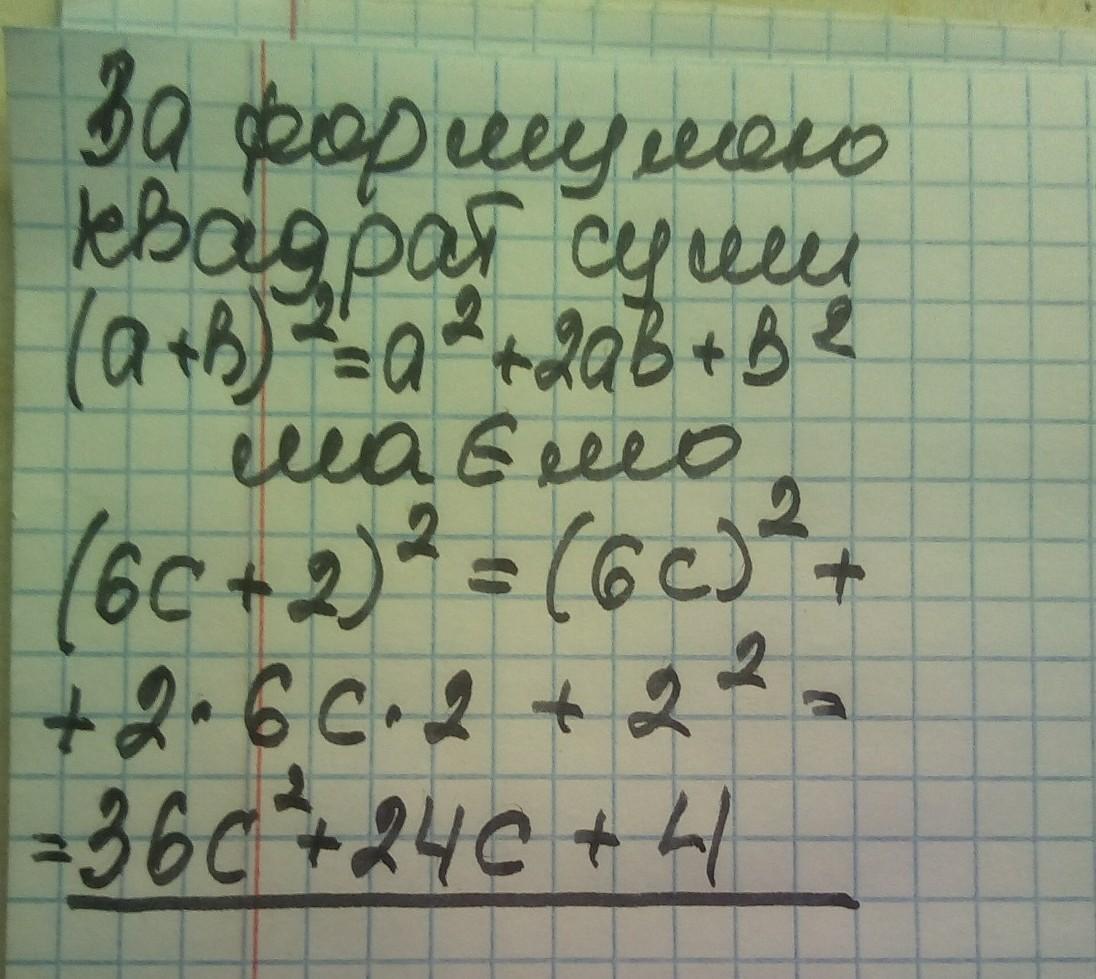 За формулою
квадрат суми
(a+b)²=a²+2ab+b²
маємо
(6c+2)²=(6c)²+
+2·6c·2+2²=
=36c²+24c+4